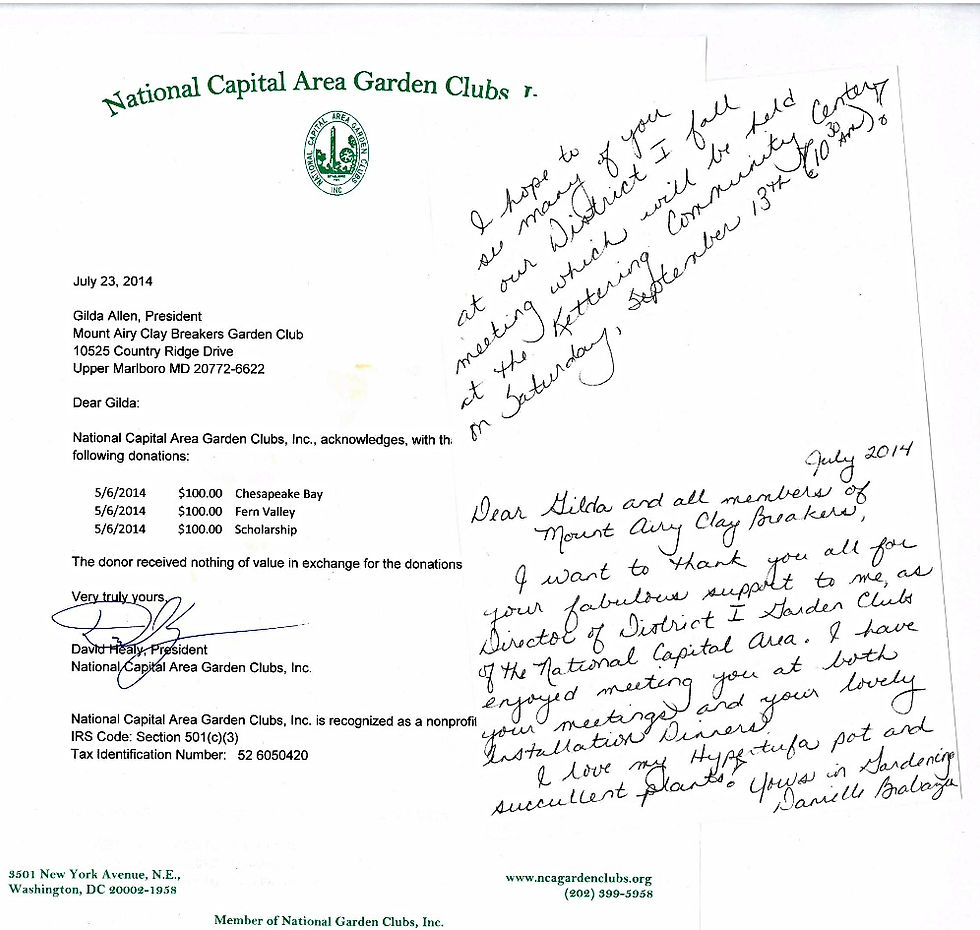 National Capital Area Garden Clubs
NATIONAL CAPITAL AREA GARDEN CLUBS
INC
July 23, 2014
Gilda Allen, President
Mount Airy Clay Breakers Garden Club
10525 Country Ridge Drive
Upper Marlboro MD 20772-6622
Dear Gilda:
National Capital Area Garden Clubs, Inc., acknowledges, with
following donations:
5/6/2014 $100.00 Chesapeake Bay
5/6/2014 $100.00 Fern Valley
5/6/2014 $100.00 Scholarship
The donor received nothing of value in exchange for the donations
Very truly yours,
David Healy, President
National Capital Area Garden Clubs, Inc.
National Capital Area Garden Clubs, Inc. is recognized as a nonprofit
IRS Code: Section 501(c)(3)
Tax Identification Number: 52 6050420
3501 New York Avenue, N.E.,
Washington, DC 20002-1958
www.ncagardenclubs.org
(202) 399-5958
Member of National Garden Clubs, Inc.
I hope to
see many of you
at our District I fall
meeting which will be held
at the Kettering Community Center,
on Saturday, September 13th (10 30 AM).
July 2014
Dear Gilda and all members of
Mount Airy Clay Breakers,
I want to thank you all for
your fabulous support to me, as
Director of District I Garden Clubs
of the National Capital Area. I have
enjoyed meeting you at both
your meetings and your lovely
Installation Dinners.
I love my Hypertufa pot and
succullent plants! Yours in Gardening
Danielle